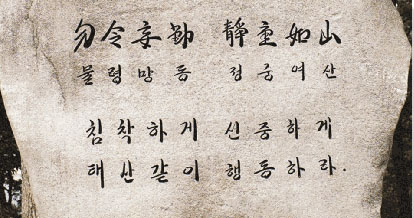 勿令妄動 靜重如山
물령망동 정중여산
침착하게 신중하게
태산같이 행동하라.